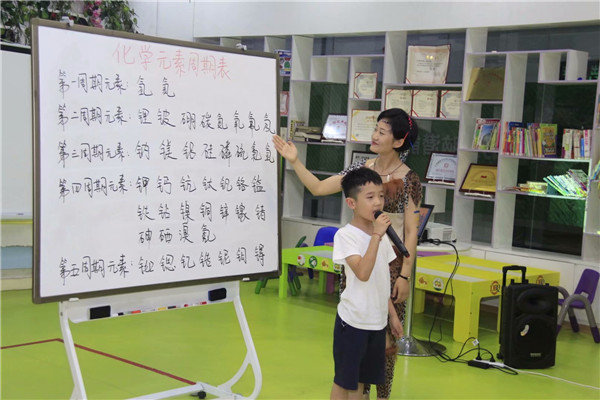 化学元素周期表
第一周期元素: 氢 氦
第二周期元素: 锂 铍 硼 碳 氮 氧 氟 氖
第三周期元素: 钠 镁 铝 硅 磷 硫 氯 氩
第四周期元素: 钾 钙 钪 钛 钒 铬 锰
铁 钴 镍 铜 锌 镓 锗
砷 硒 溴 氪
第五周期元素: 铷 锶 钇 锆 铌 钼 锝